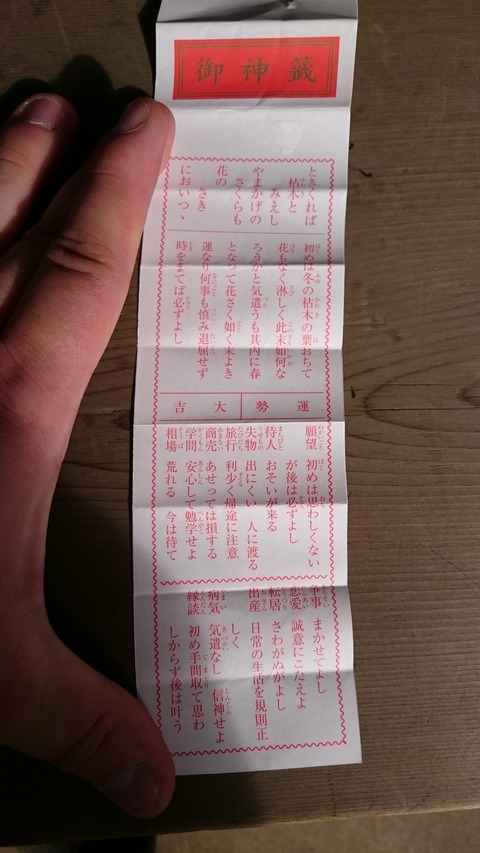 御神籤
ときくれば
枯木と
みえし
やまかげの
さくらも
花の
さき
においつゝ
初めは冬の枯木の葉おちて
花もなく淋しく此末如何な
ろうかと気遣うも其内に春
となって花さく如く末よき
運なり何事も慎み退屈せず
時をまてば必ずよし
運勢
大吉
願望 初めは思わしくない
が後は必ずよし
待人 おそいが来る
失物 出にくい 人に渡る
旅行 利少く帰途に注意
商売 あせっては損する
学問 安心して勉学せよ
相場 荒れる 今は待て
争事 まかせてよし
恋愛 誠意にこたえよ
転居 さわがぬがよし
出産 日常の生活を規則正
しく
病気 気遣なし 信神せよ
縁談 初め手間取て思わ
しからず後は叶う